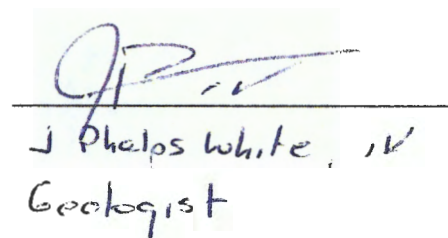 J Phelps White, IV
Geologist